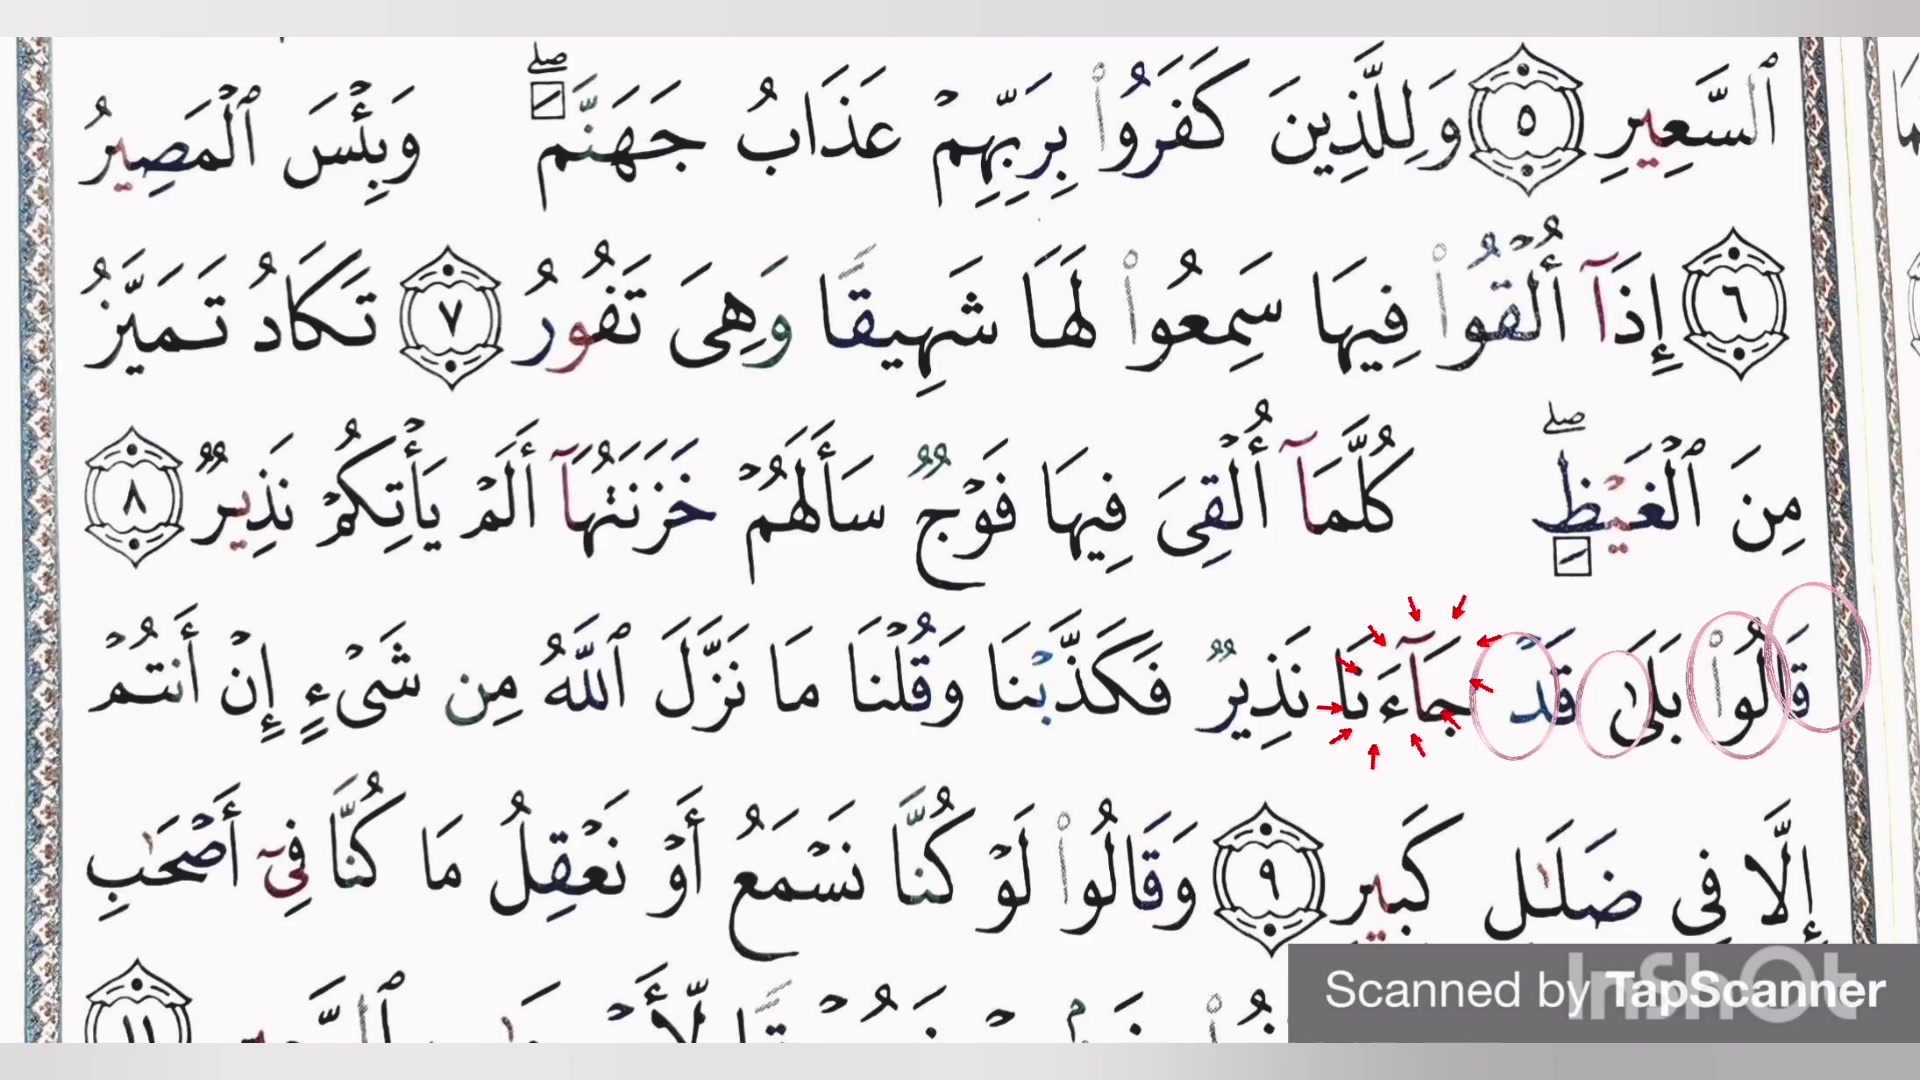 ٱلسَّعِيرِ ٥ وَلِلَّذِينَ كَفَرُوا۟ بِرَبِّهِمْ عَذَابُ جَهَنَّمَ ۖ وَبِئْسَ ٱلْمَصِيرُ
٦ إِذَآ أُلْقُوا۟ فِيهَا سَمِعُوا۟ لَهَا شَهِيقًا وَهِىَ تَفُورُ ٧ تَكَادُ تَمَيَّزُ
مِنَ ٱلْغَيْظِ ۖ كُلَّمَآ أُلْقِىَ فِيهَا فَوْجٌ سَأَلَهُمْ خَزَنَتُهَآ أَلَمْ يَأْتِكُمْ نَذِيرٌ ٨
قَالُوا۟ بَلَىٰ قَدْ جَآءَنَا نَذِيرٌ فَكَذَّبْنَا وَقُلْنَا مَا نَزَّلَ ٱللَّهُ مِن شَىْءٍ إِنْ أَنتُمْ
إِلَّا فِى ضَلَـٰلٍ كَبِيرٍ ٩ وَقَالُوا۟ لَوْ كُنَّا نَسْمَعُ أَوْ نَعْقِلُ مَا كُنَّا فِىٓ أَصْحَـٰبِ
١١
Scanned by TapScanner
InShOt